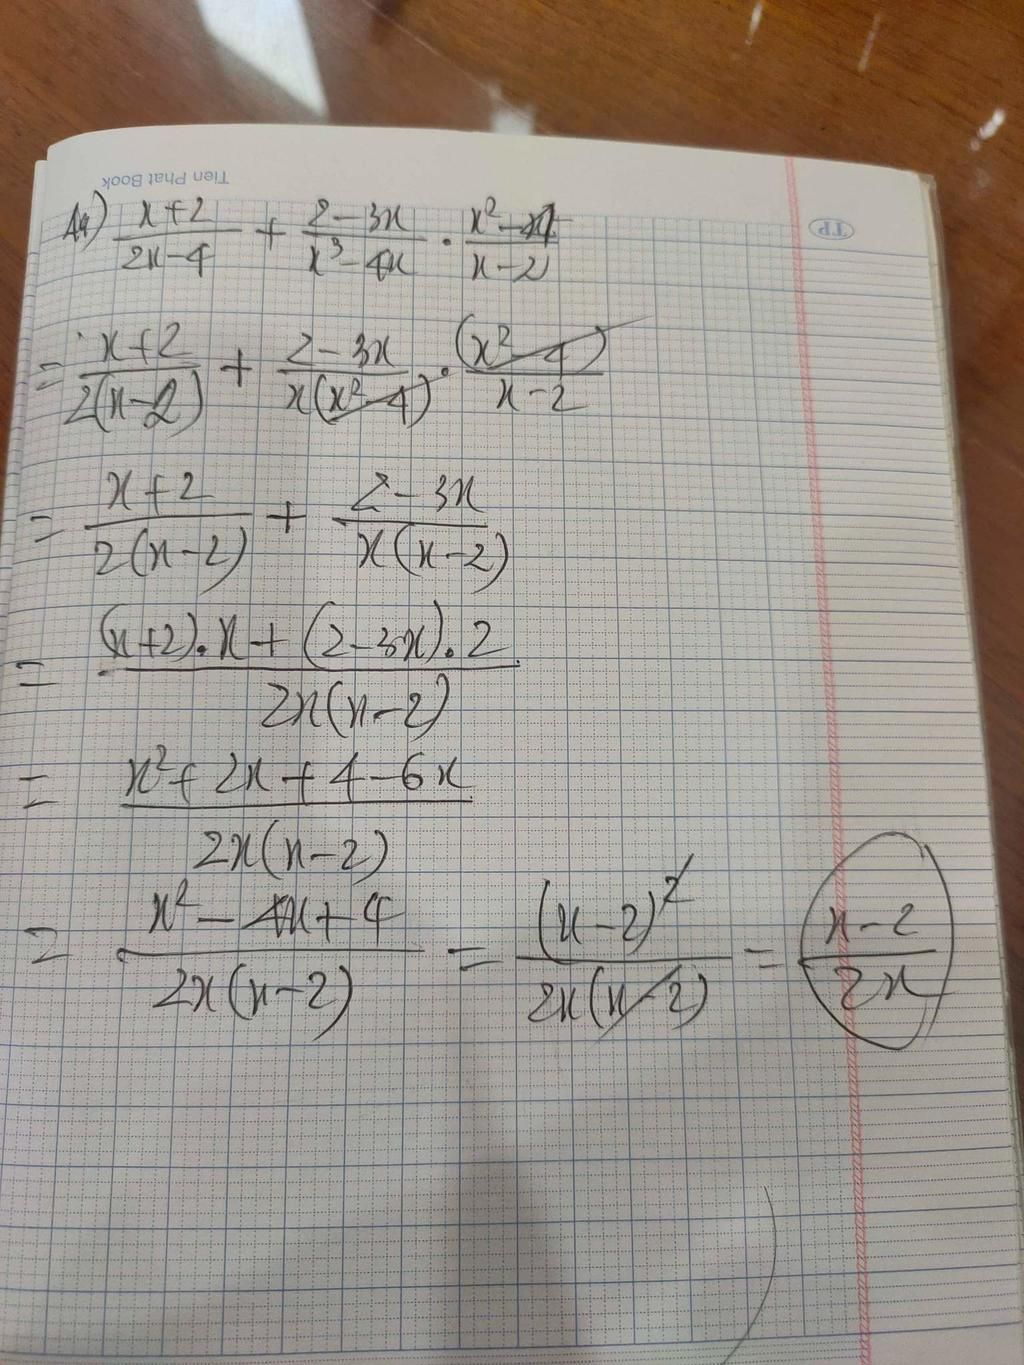 Tien Phat Book
TP
1a) \frac{x+2}{2x-4} + \frac{2-3x}{x^3-4x} \cdot \frac{x^2-4}{x-2}
= \frac{x+2}{2(x-2)} + \frac{2-3x}{x(x^2-4)} \cdot \frac{(x^2-4)}{x-2}
= \frac{x+2}{2(x-2)} + \frac{2-3x}{x(x-2)}
= \frac{(x+2).x+(2-3x).2}{2x(x-2)}
= \frac{x^2+2x+4-6x}{2x(x-2)}
= \frac{x^2-4x+4}{2x(x-2)} = \frac{(x-2)^2}{2x(x-2)} = \frac{x-2}{2x}